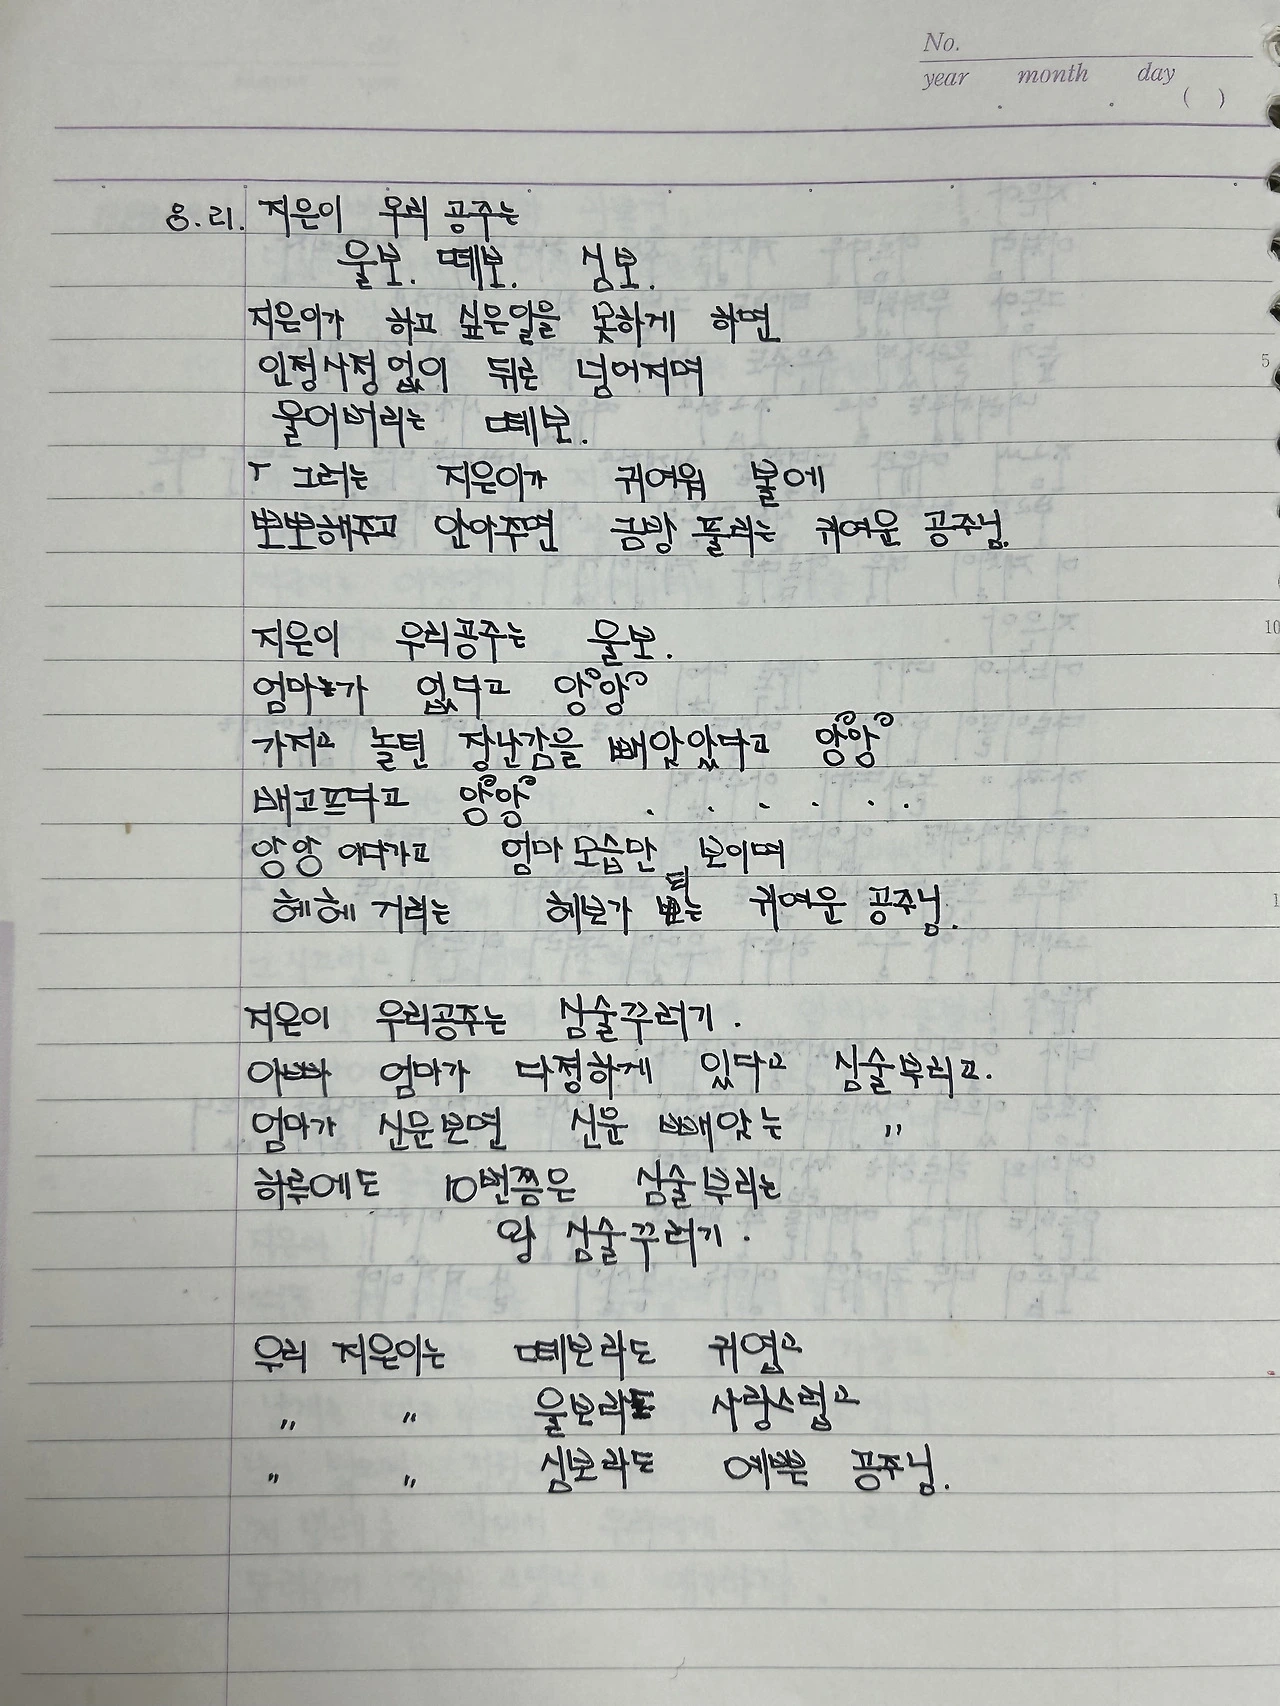 No.
year month day
( )
8.21. 지은이 우리 공주는
울보. 떼보. 심보.
지은이가 하고 싶은일을 못하게 하면
인정사정없이 뒤로 넘어지며
울어버리는 떼보.
그러는 지은이가 귀여워 볼에
뽀뽀해주고 안아주면 금방 풀리는 귀여운 공주님.
지은이 우리공주는 울보.
엄마가 없다고 앙앙
가지고 놀던 장난감을 빼앗았다고 앙앙
5
10
배고프다고 앙앙 . . . . . .
앙앙 이다가고 엄마 모습만 보이며
헤헤 거리는 헤보가 되는 귀여운 공주님.
지은이 우리공주는 심술꾸러기.
아빠 엄마가 다정하게 있다고 심술부리고.
엄마가 신문보면 신문 빼앗누 〃
하루에도 10번쯤은 심술부리는
왕 심술꾸러기.
우리 지은이는 떼보라도 귀엽고
〃 〃 울보라도 사랑스럽고
〃 〃 심보라도 예쁜 공주님.